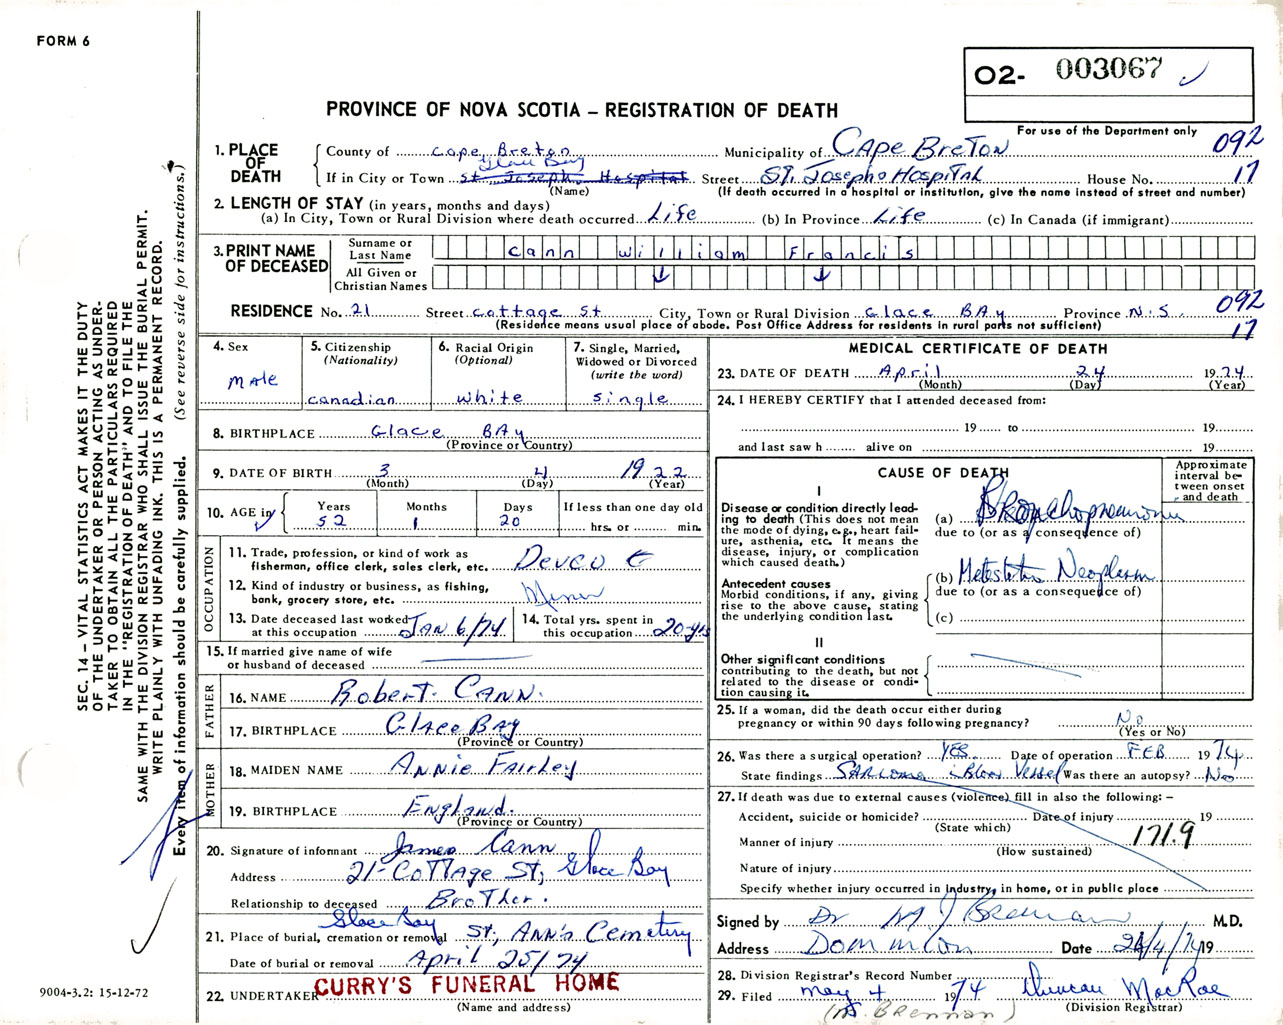 FORM 6
O2- 003067
PROVINCE OF NOVA SCOTIA – REGISTRATION OF DEATH
For use of the Department only
092
17
1. PLACE OF DEATH
County of Cape Breton Municipality of Cape Breton
Glace Bay
If in City or Town St. Joseph Hospital Street St. Josephs Hospital House No.
(Name) (If death occurred in a hospital or institution, give the name instead of street and number)
2. LENGTH OF STAY (in years, months and days)
(a) In City, Town or Rural Division where death occurred Life (b) In Province Life (c) In Canada (if immigrant)
3. PRINT NAME OF DECEASED
Surname or Last Name Cann William Francis
All Given or Christian Names
092
17
RESIDENCE No. 21 Street cottage St City, Town or Rural Division Glace BAy Province N.S.
(Residence means usual place of abode. Post Office Address for residents in rural parts not sufficient)
4. Sex male
5. Citizenship (Nationality) canadian
6. Racial Origin (Optional) white
7. Single, Married, Widowed or Divorced (write the word) single
8. BIRTHPLACE Glace BAy
(Province or Country)
9. DATE OF BIRTH 3 4 1922
(Month) (Day) (Year)
10. AGE in Years 52 Months 1 Days 20
If less than one day old hrs. or min.
OCCUPATION
11. Trade, profession, or kind of work as fisherman, office clerk, sales clerk, etc. Devco
12. Kind of industry or business, as fishing, bank, grocery store, etc. Miner
13. Date deceased last worked at this occupation JAN 6/74
14. Total yrs. spent in this occupation 20 yrs
15. If married give name of wife or husband of deceased
FATHER
16. NAME Robert CANN.
17. BIRTHPLACE Glace BAy
(Province or Country)
MOTHER
18. MAIDEN NAME ANNIE FAIrley
19. BIRTHPLACE England.
(Province or Country)
20. Signature of informant James Cann
Address 21- Cottage St, Glace Bay
Relationship to deceased Brother.
Glace Bay
21. Place of burial, cremation or removal St, Ann's Cemetery
Date of burial or removal April 25/74
22. UNDERTAKER CURRY'S FUNERAL HOME
(Name and address)
MEDICAL CERTIFICATE OF DEATH
23. DATE OF DEATH April 24 1974
(Month) (Day) (Year)
24. I HEREBY CERTIFY that I attended deceased from:
19 to 19
and last saw h alive on 19
CAUSE OF DEATH
Approximate interval between onset and death
I
Disease or condition directly leading to death (This does not mean the mode of dying, e.g., heart failure, asthenia, etc. It means the disease, injury, or complication which caused death.)
(a) Bronchopneumonia
due to (or as a consequence of)
Antecedent causes
Morbid conditions, if any, giving rise to the above cause, stating the underlying condition last.
(b) Metastatic Neoplasm
due to (or as a consequence of)
(c)
II
Other significant conditions contributing to the death, but not related to the disease or condition causing it.
25. If a woman, did the death occur either during pregnancy or within 90 days following pregnancy? No
(Yes or No)
26. Was there a surgical operation? YES Date of operation FEB 1974
State findings SARcoma Blood Vessel Was there an autopsy? No
27. If death was due to external causes (violence) fill in also the following: –
Accident, suicide or homicide? Date of injury 19
(State which)
171.9
Manner of injury
(How sustained)
Nature of injury
Specify whether injury occurred in industry, in home, or in public place
Signed by Dr M J Brennan M.D.
Address Dominion Date 24/4/74 19
28. Division Registrar's Record Number
29. Filed May 4 1974 Duncan MacRae
(Division Registrar)
BRENNAN)
SEC. 14 – VITAL STATISTICS ACT MAKES IT THE DUTY
OF THE UNDERTAKER OR PERSON ACTING AS UNDER-
TAKER TO OBTAIN ALL THE PARTICULARS REQUIRED
IN THE "REGISTRATION OF DEATH" AND TO FILE THE
SAME WITH THE DIVISION REGISTRAR WHO SHALL ISSUE THE BURIAL PERMIT.
WRITE PLAINLY WITH UNFADING INK. THIS IS A PERMANENT RECORD.
Every item of information should be carefully supplied. (See reverse side for instructions.)
9004-3.2: 15-12-72